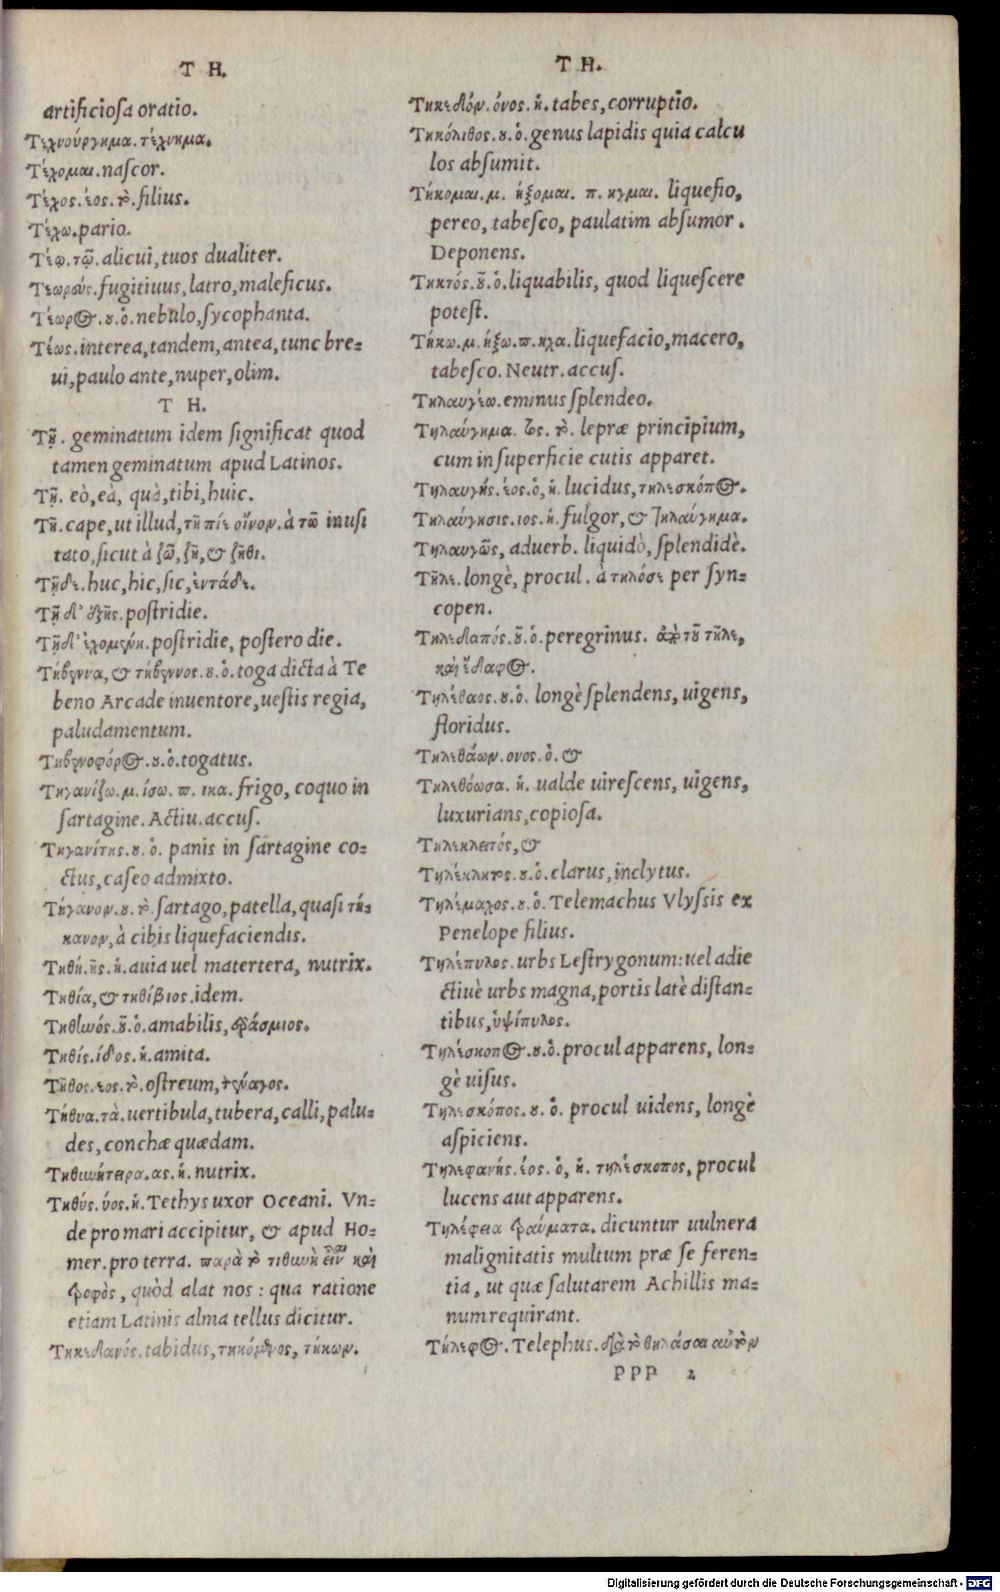 T H.
artificiosa oratio.
Τεχνούργημα. τέχνημα.
Τέχομαι. nascor.
Τέχος. εος. τὸ. filius.
Τέχω. pario.
Τέῳ. τῷ. alicui, tuos dualiter.
Τεωρούς. fugitiuus, latro, maleficus.
Τέωρος. ου. ὁ. nebulo, sycophanta.
Τέως. interea, tandem, antea, tunc bre=
ui, paulo ante, nuper, olim.
T H.
Τῇ. geminatum idem significat quod
tamen geminatum apud Latinos.
Τῇ. eò, eà, quà, tibi, huic.
Τῆ. cape, ut illud, τῆ πίε οἶνον. à τῶ inusi
tato, sicut à ζῶ, ζῆ, & ζῆθι.
Τῇδε. huc, hic, sic, ἐντάδε.
Τῇ δ' ἑξῆς. postridie.
Τῇ δ' ἐχομένη. postridie, postero die.
Τήβεννα, & τήβεννος. ου. ὁ. toga dicta à Te
beno Arcade inuentore, uestis regia,
paludamentum.
Τηβεννοφόρος. ου. ὁ. togatus.
Τηγανίζω. μ. ίσω. π. ικα. frigo, coquo in
sartagine. Actiu. accus.
Τηγανίτης. ου. ὁ. panis in sartagine co=
ctus, caseo admixto.
Τήγανον. ου. τὸ. sartago, patella, quasi τή=
κανον, à cibis liquefaciendis.
Τηθή. ῆς. ἡ. auia uel matertera, nutrix.
Τηθία, & τηθίβιος. idem.
Τηθινός. οῦ. ὁ. amabilis, ἐράσμιος.
Τηθίς. ίδος. ἡ. amita.
Τῆθος. εος. τὸ. ostreum, τέναγος.
Τήθυα. τὰ. uertibula, tubera, calli, palu=
des, conchæ quædam.
Τηθυνήτειρα. ας. ἡ. nutrix.
Τηθύς. ύος. ἡ. Tethys uxor Oceani. Vn=
de pro mari accipitur, & apud Ho=
mer. pro terra. παρὰ τὸ τιθηνὴ εἶναι καὶ
τροφὸς, quòd alat nos : qua ratione
etiam Latinis alma tellus dicitur.
Τηκεδανός. tabidus, τηκόμενος, τήκων.
T H.
Τηκεδόν. όνος. ἡ. tabes, corruptio.
Τηκόλιθος. ου. ὁ. genus lapidis quia calcu
los absumit.
Τήκομαι. μ. ήξομαι. π. ηγμαι. liquefio,
pereo, tabesco, paulatim absumor.
Deponens.
Τηκτός. οῦ. ὁ. liquabilis, quod liquescere
potest.
Τήκω. μ. ήξω. π. ηχα. liquefacio, macero,
tabesco. Neutr. accus.
Τηλαυγέω. eminus splendeo.
Τηλαύγημα. τος. τὸ. lepræ principium,
cum in superficie cutis apparet.
Τηλαυγής. έος. ὁ, ἡ. lucidus, τηλεσκόπος.
Τηλαύγησις. ιος. ἡ. fulgor, & τηλαύγημα.
Τηλαυγῶς, aduerb. liquidò, splendidè.
Τῆλε. longè, procul. à τηλόσε per syn=
copen.
Τηλεδαπός. οῦ. ὁ. peregrinus. παρὰ τοῦ τῆλε,
καὶ ἔδαφος.
Τηλέθαος. ου. ὁ. longè splendens, uigens,
floridus.
Τηλεθάων. ονος. ὁ. &
Τηλεθόωσα. ἡ. ualde uirescens, uigens,
luxurians, copiosa.
Τηλεκλειτός, &
Τηλέκλητος. ου. ὁ. clarus, inclytus.
Τηλέμαχος. ου. ὁ. Telemachus Vlyssis ex
Penelope filius.
Τηλέπυλος. urbs Lestrygonum: uel adie
ctiuè urbs magna, portis latè distan=
tibus, ὑψίπυλος.
Τηλέσκοπος. ου. ὁ. procul apparens, lon=
gè uisus.
Τηλεσκόπος. ου. ὁ. procul uidens, longè
aspiciens.
Τηλεφανής. έος. ὁ, ἡ. τηλέσκοπος, procul
lucens aut apparens.
Τηλέφεια τραύματα. dicuntur uulnera
malignitatis multum præ se feren=
tia, ut quæ salutarem Achillis ma=
num requirant.
Τήλεφος. Telephus. διὰ τὸ θηλάσαι αὐτὸν
PPP 2
Digitalisierung gefördert durch die Deutsche Forschungsgemeinschaft - DFG